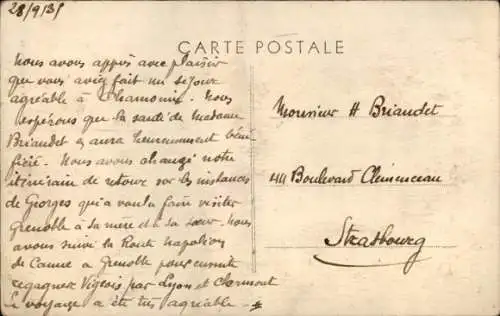 28/9/35
CARTE POSTALE
Nous avons appris avec plaisir
que vous aviez fait un séjour
agréable à Chamonix. Nous
espérons que la santé de Madame
Briaudet en aura heureusement béné-
ficié. Nous avons changé notre
itinéraire de retour sur les instances
de Georges qui a voulu faire visiter
Grenoble à sa mère et à sa sœur. Nous
avons suivi la Route Napoléon
de Canne à Grenoble pour ensuite
regagner Vigeois par Lyon et Clermont
Le voyage a été très agréable.
Monsieur H Briaudet
44 Boulevard Clémenceau
Strasbourg